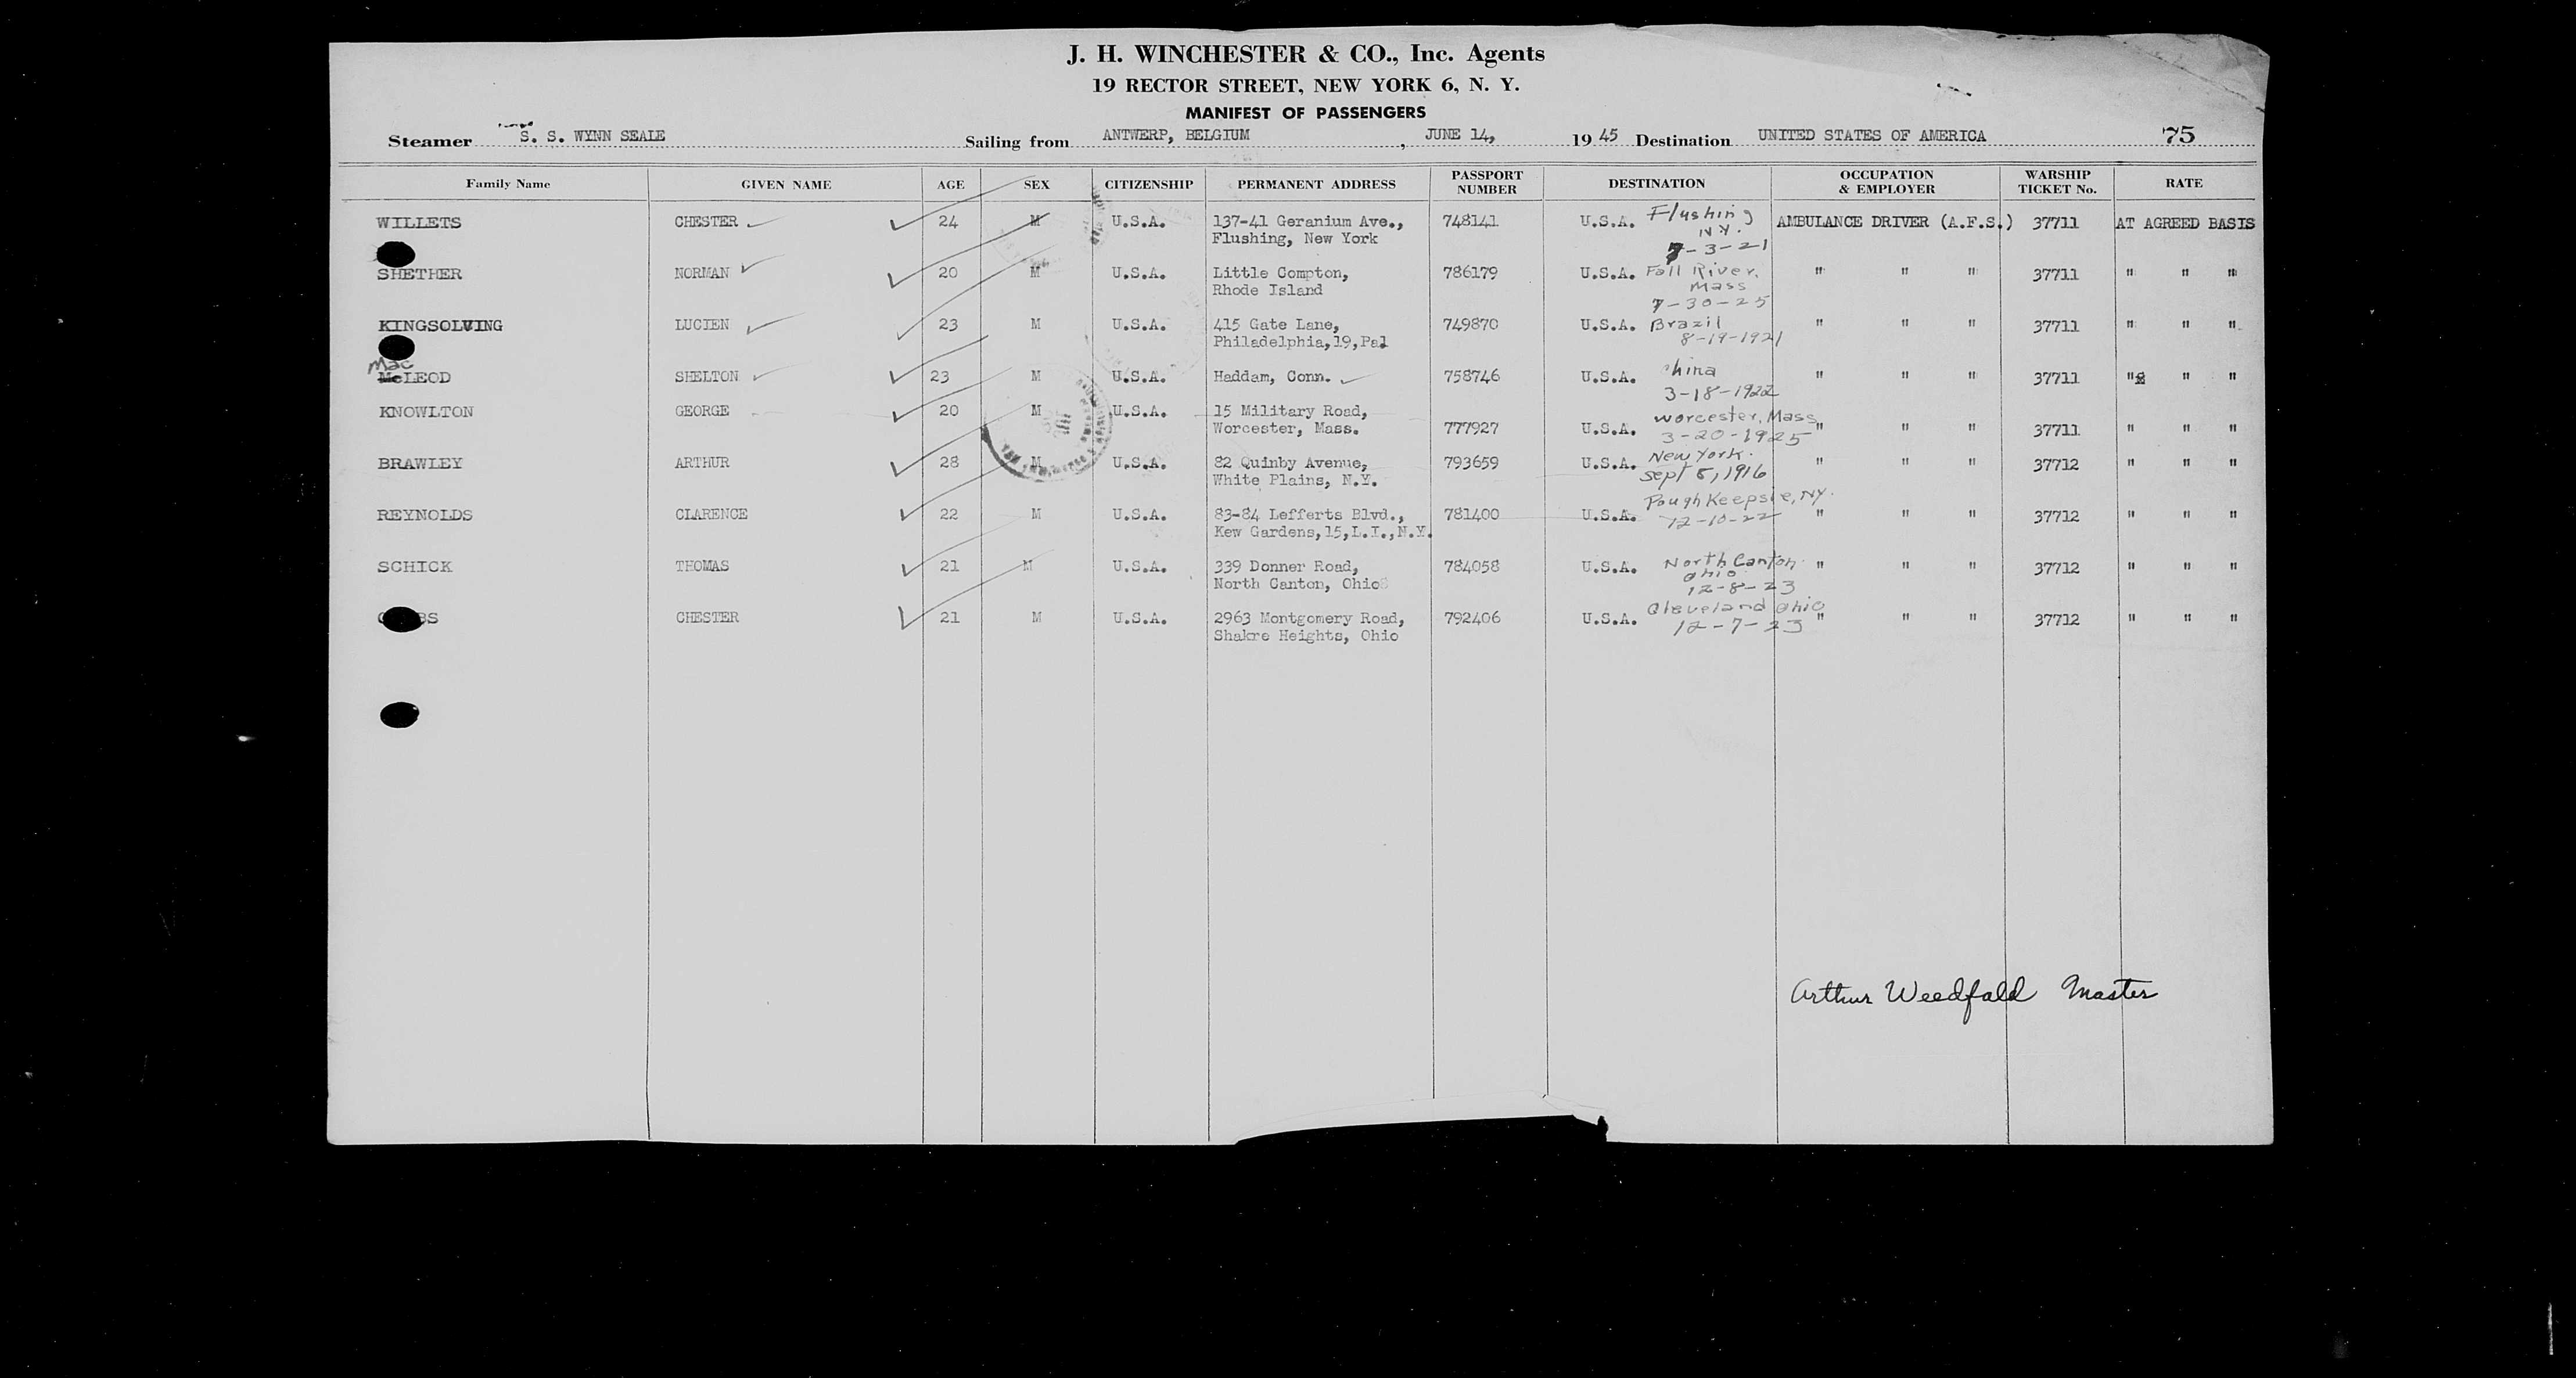 J. H. WINCHESTER & CO., Inc. Agents
19 RECTOR STREET, NEW YORK 6, N. Y.
MANIFEST OF PASSENGERS
Steamer S. S. WYNN SEALE Sailing from ANTWERP, BELGIUM, JUNE 14, 19 45 Destination UNITED STATES OF AMERICA 75
Family Name GIVEN NAME AGE SEX CITIZENSHIP PERMANENT ADDRESS PASSPORT NUMBER DESTINATION OCCUPATION & EMPLOYER WARSHIP TICKET No. RATE
WILLETS CHESTER 24 M U.S.A. 137-41 Geranium Ave., 748141 U.S.A. Flushing AMBULANCE DRIVER (A.F.S.) 37711 AT AGREED BASIS
Flushing, New York N.Y.
7-3-21
SHETHER NORMAN 20 M U.S.A. Little Compton, 786179 U.S.A. Fall River, " " " 37711 " " "
Rhode Island Mass
7-30-25
KINGSOLVING LUCIEN 23 M U.S.A. 415 Gate Lane, 749870 U.S.A. Brazil " " " 37711 " " "
Philadelphia,19,Pa 8-19-1921
Mac
McLEOD SHELTON 23 M U.S.A. Haddam, Conn. 758746 U.S.A. hina " " " 37711 " " "
3-18-1922
KNOWLTON GEORGE 20 M U.S.A. 15 Military Road, Worcester, Mass
Worcester, Mass. 777927 U.S.A. 3-20-1925 " " " 37711 " " "
BRAWLEY ARTHUR 28 M U.S.A. 82 Quinby Avenue, 793659 U.S.A. New York. " " " 37712 " " "
White Plains, N.Y. Sept 5, 1916
Poughkeepsie, NY.
REYNOLDS CLARENCE 22 M U.S.A. 83-84 Lefferts Blvd., 781400 U.S.A. 12-10-22 " " " 37712 " " "
Kew Gardens,15,L.I.,N.Y.
SCHICK THOMAS 21 M U.S.A. 339 Donner Road, 784058 U.S.A. North Canton " " " 37712 " " "
North Canton, Ohio Ohio
12-8-23
Cleveland Ohio
CHESTER 21 M U.S.A. 2963 Montgomery Road, 792406 U.S.A. 12-7-23 " " " 37712 " " "
Shakre Heights, Ohio
Arthur Weedfald Master